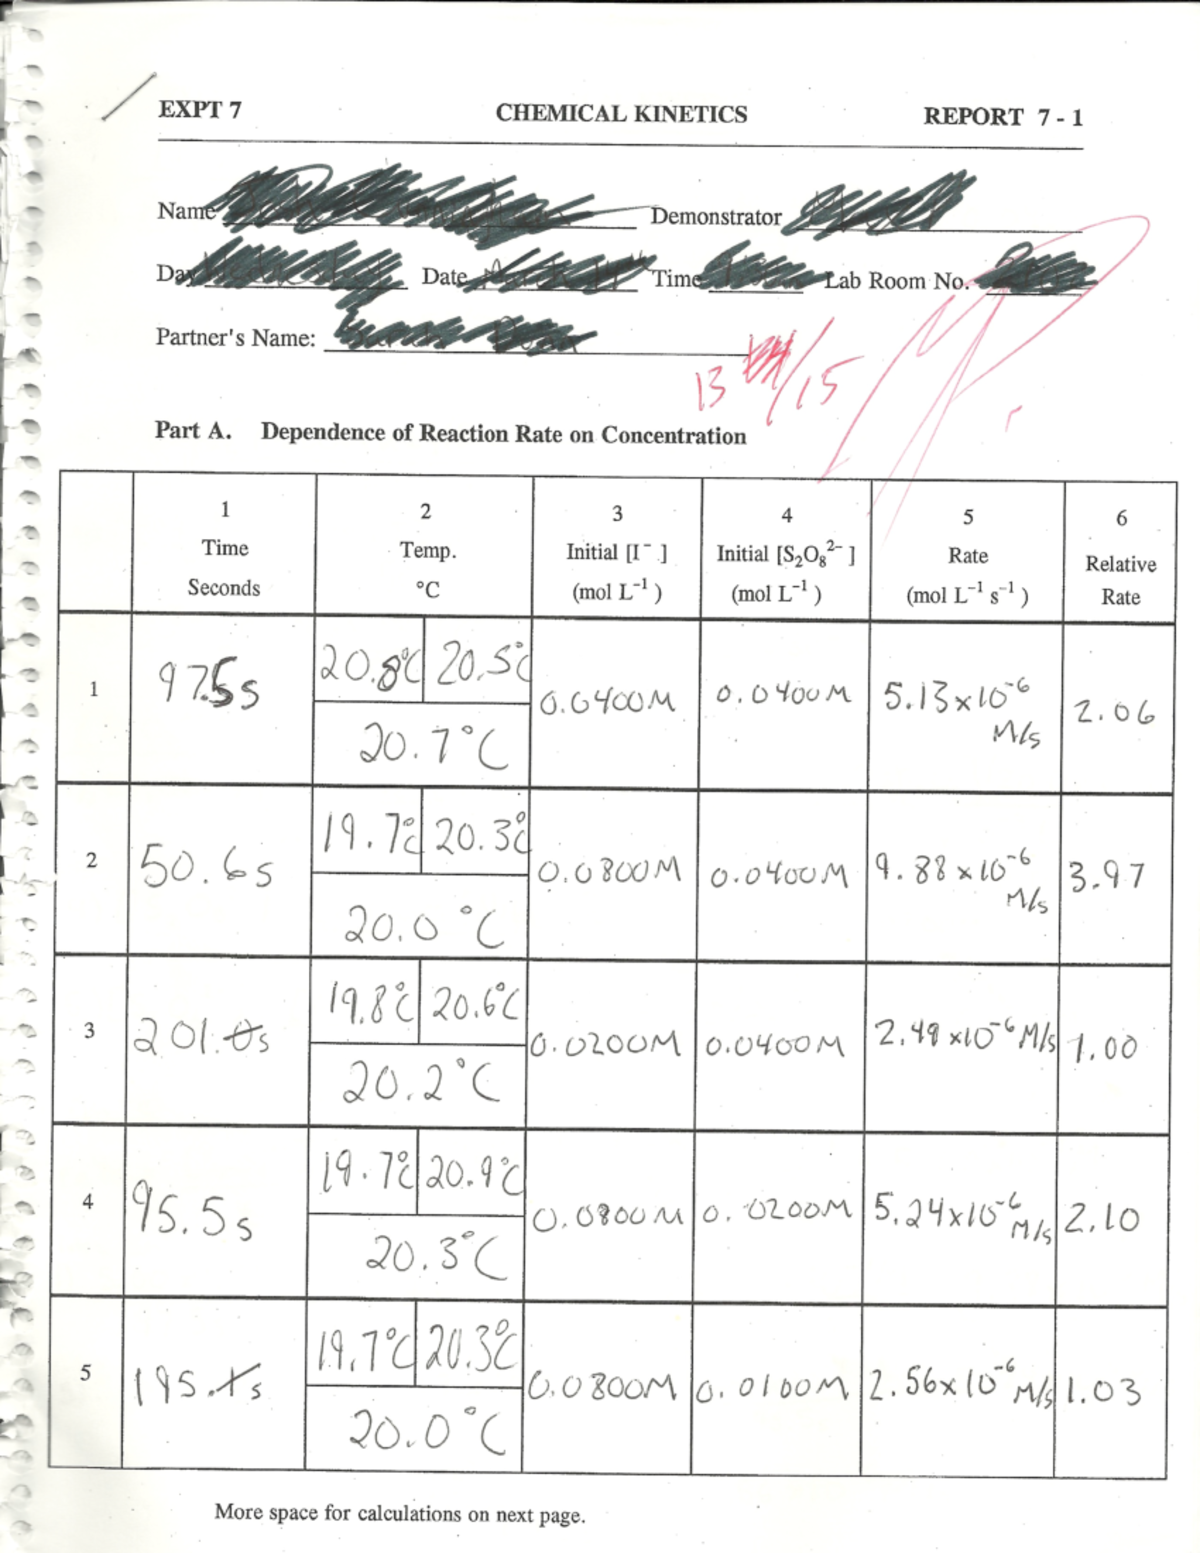 EXPT 7 CHEMICAL KINETICS REPORT 7 - 1
Name Demonstrator
Day Date Time Lab Room No.
Partner's Name:
13 /15
Part A. Dependence of Reaction Rate on Concentration
1 2 3 4 5 6
Time Temp. Initial [I⁻ ] Initial [S₂O₈²⁻ ] Rate Relative
Seconds °C (mol L⁻¹ ) (mol L⁻¹ ) (mol L⁻¹ s⁻¹ ) Rate
1 97.5s 20.8°C 20.5°C 0.0400M 0.0400M 5.13x10⁻⁶ M/s 2.06
20.7°C
2 50.6s 19.7°C 20.3°C 0.0800M 0.0400M 9.88x10⁻⁶ M/s 3.97
20.0°C
3 201.s 19.8°C 20.6°C 0.0200M 0.0400M 2.49x10⁻⁶ M/s 1.00
20.2°C
4 95.5s 19.7°C 20.9°C 0.0800M 0.0200M 5.24x10⁻⁶ M/s 2.10
20.3°C
5 195.s 19.7°C 20.3°C 0.0800M 0.0100M 2.56x10⁻⁶ M/s 1.03
20.0°C
More space for calculations on next page.